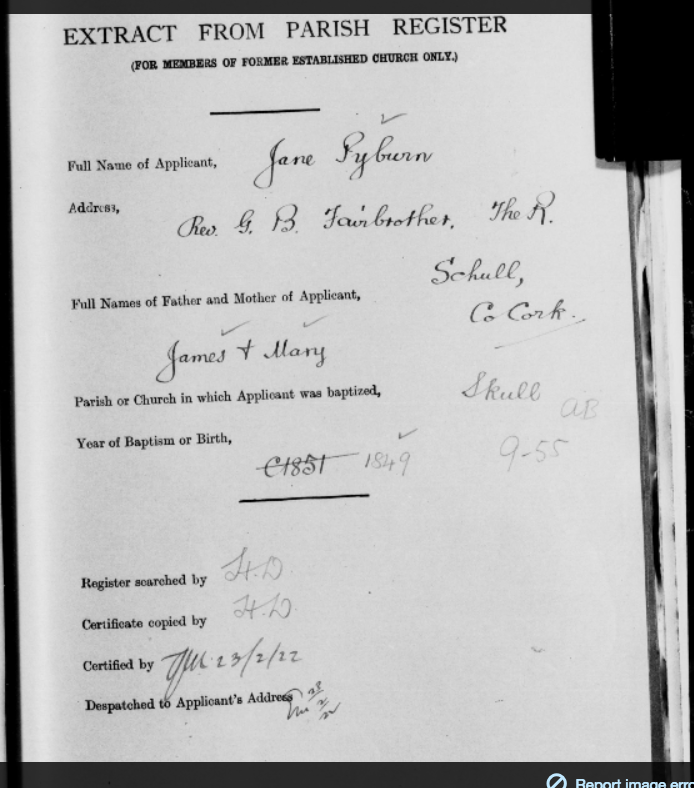 EXTRACT FROM PARISH REGISTER
(FOR MEMBERS OF FORMER ESTABLISHED CHURCH ONLY.)
Full Name of Applicant, Jane Pyburn
Address,
Rev. G. B. Fairbrother, The R.
Schull,
Full Names of Father and Mother of Applicant,
Co Cork.
James + Mary
Parish or Church in which Applicant was baptized, Skull
AB
Year of Baptism or Birth,
C1851 1849 9-55
Register searched by H.D
Certificate copied by H.D
Certified by 23/2/22
Despatched to Applicant's Address
Report image erro